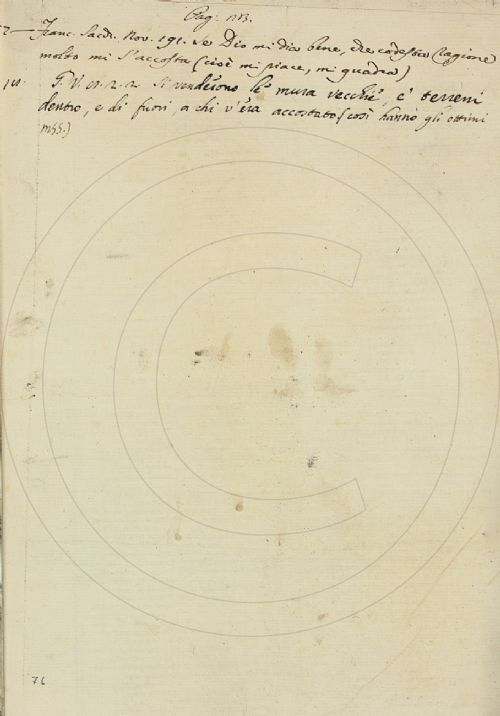 Pag. 
Franc. Sacch. Nov. 191. se Dio mi dica bene, che codesta Ragione
molto mi s'accosta (cioè mi piace, mi quadra)
G. V. 2. 2. Si venderono le mura vecchie, e' terreni
dentro, e di fuori, a chi v'era accostato (così hanno gli ottimi
mss.)
76